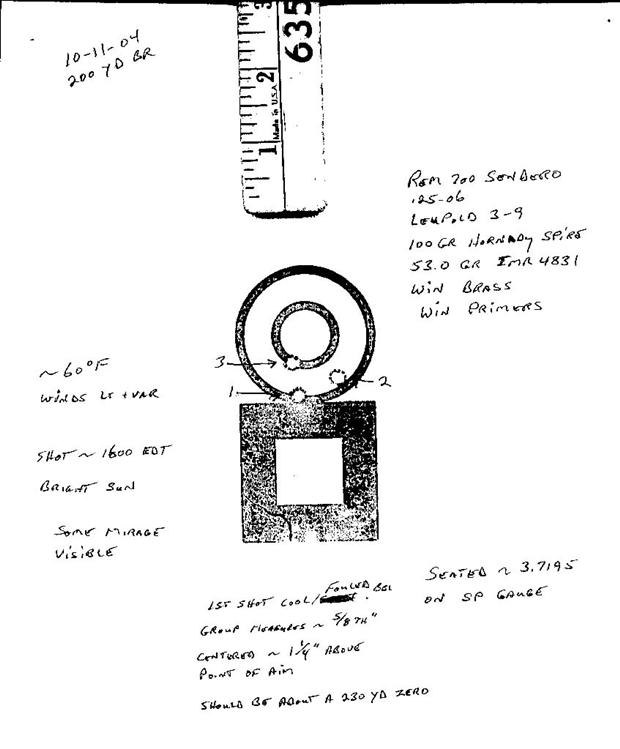 10-11-04
200 YD BR
3
2
1
Made In U.S.A.
635
REM 700 SENDERO
.25-06
LEUPOLD 3-9
100 GR HORNADY SPIRE
53.0 GR IMR 4831
WIN BRASS
WIN PRIMERS
~60°F
WINDS LT + VAR
SHOT ~ 1600 EDT
BRIGHT SUN
SOME MIRAGE
VISIBLE
3
1
2
1ST SHOT COOL/FOULED BBL.
GROUP MEASURES ~ 5/8TH"
CENTERED ~ 1 1/4" ABOVE
POINT OF AIM
SHOULD BE ABOUT A 230 YD ZERO
SEATED ~ 3.7195
ON SP GAUGE